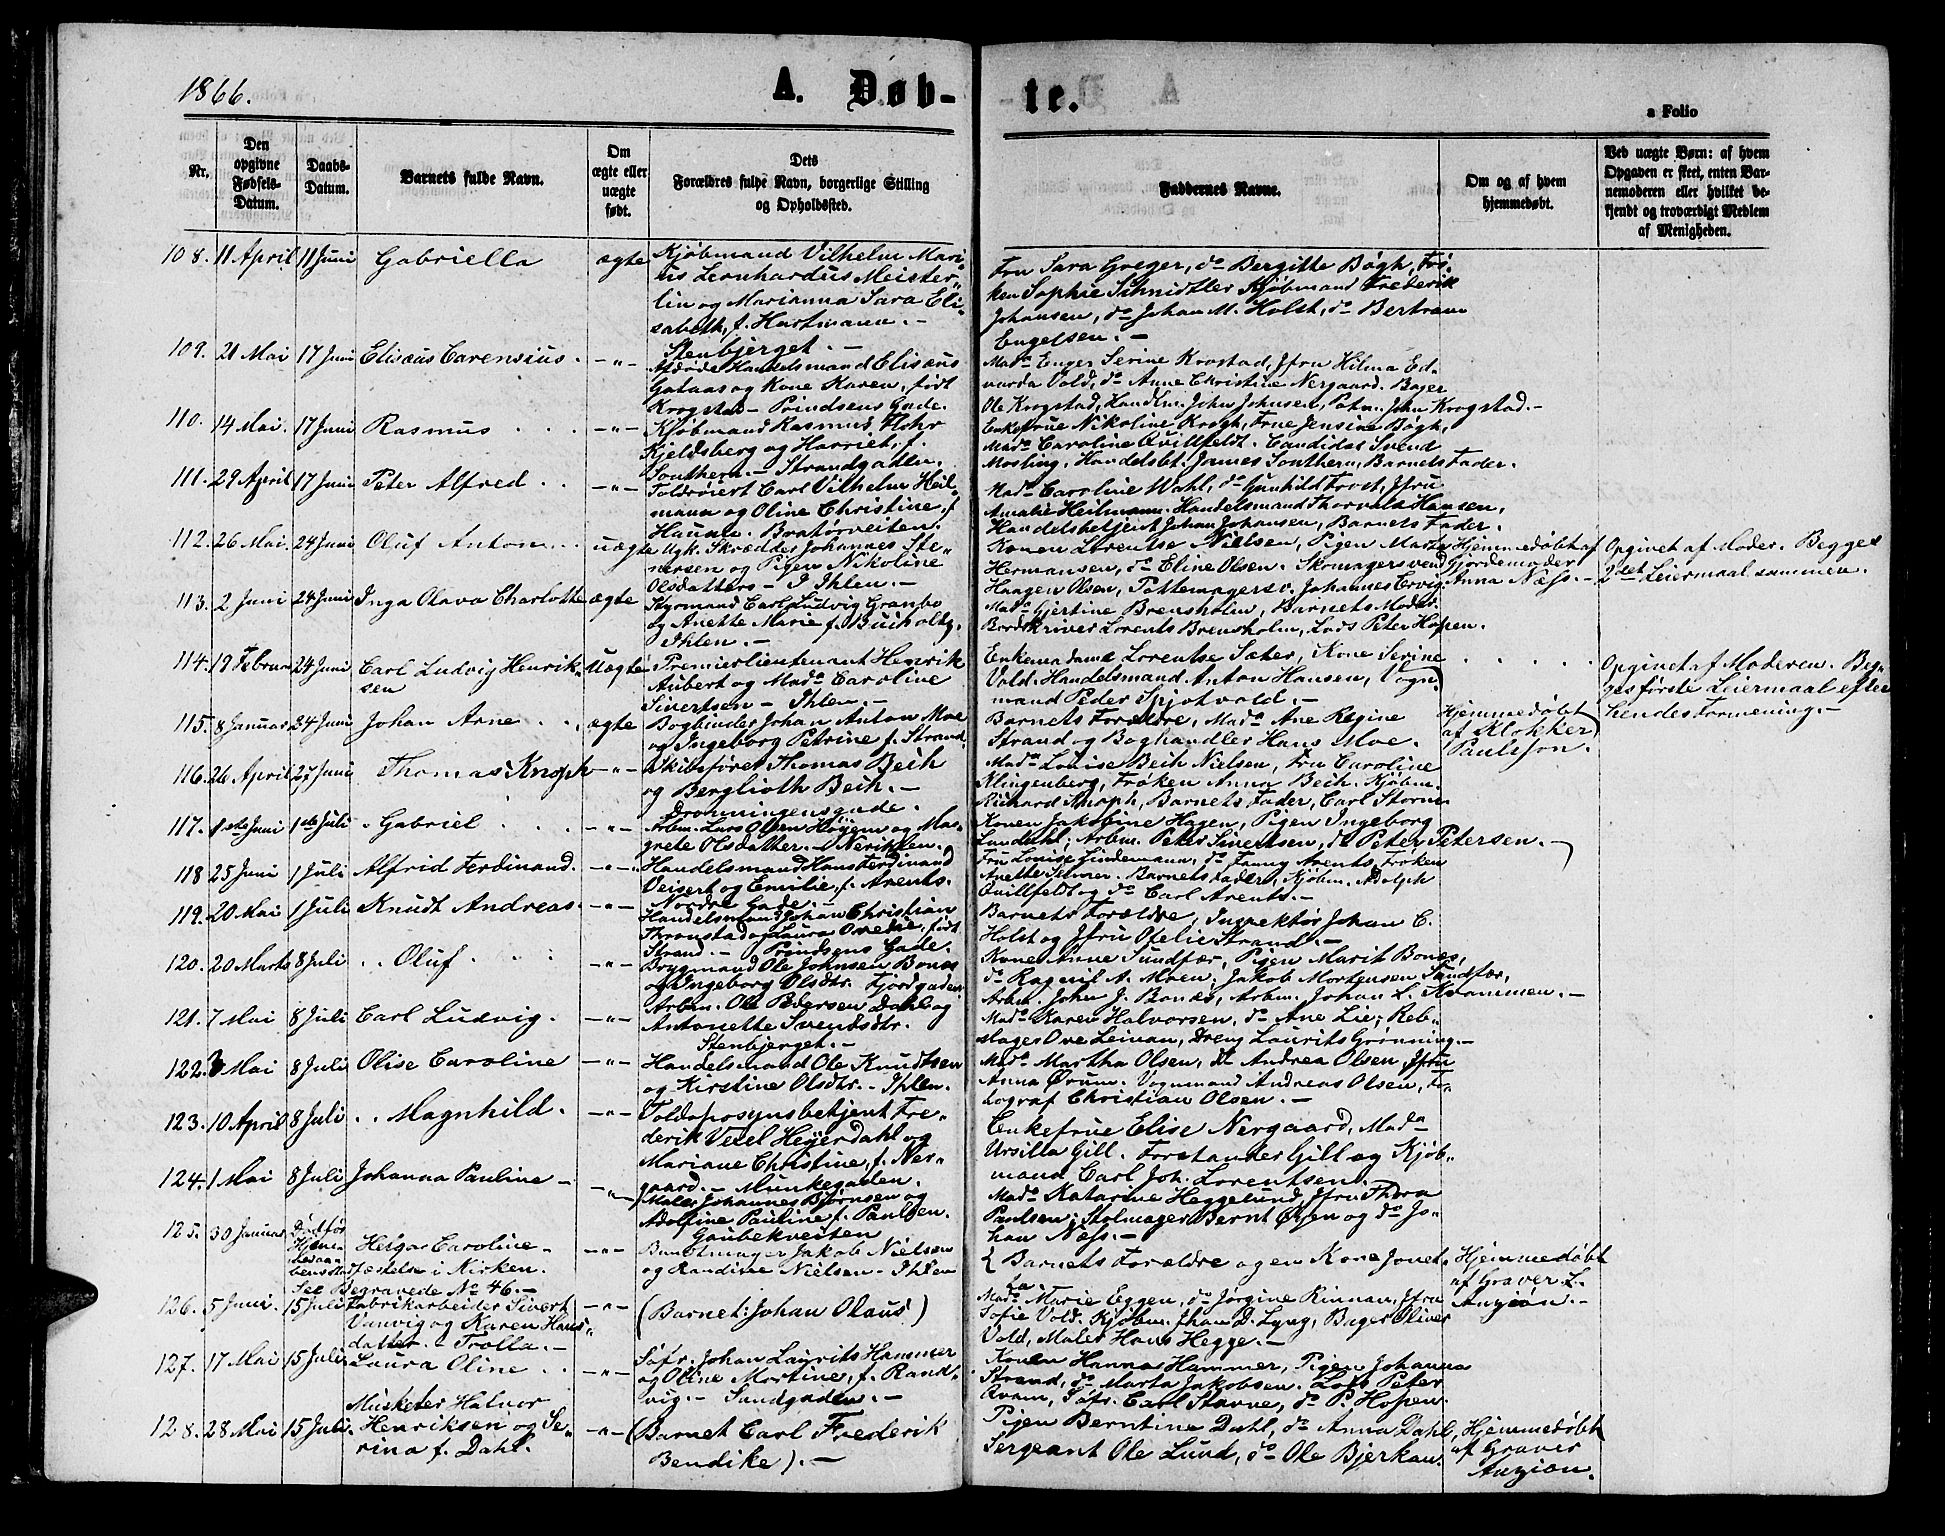 1866.
A. Døb-
te.
a Folio
Nr.
Den
opgivne
Fødsels-
Datum.
Daabs-
Datum.
Barnets fulde Navn.
Om
ægte eller
uægte
født.
Dets
Forældres fulde Navn, borgerlige Stilling
og Opholdssted.
Faddernes Navne.
Om og af hvem
hjemmedøbt.
Ved uægte Børn: af hvem
Opgaven er skeet, enten Bar-
nemoderen eller hvilket be-
kjendt og troværdigt Medlem
af Menigheden.
108. 11 April 11 Juni Gabriella ægte
Kjøbmand Vilhelm Mari-
us Leonhardus Meister-
lin og Marianna Sara Eli-
sabeth, f. Hartmann. -
Stenbjerget. -
Fru Sara Greger, do Bergitte Bøgh, Frø-
ken Sophie Schmidtler Kjøbmand Frederik
Johansen, do Johan M. Holst, do Bertram
Engelsen. -
109. 21 Mai 17 Juni Elisæus Carensius. -"-
Afdøde Handelsmand Elisæus
Gataas og Kone Karen, født
Krogstad - Prindsens Gade.
Mada Enger Serine Krostad, Jfru Hilma Ed-
varda Vold, do Anne Christine Nergaard. Bager
Ole Krogstad, Handlm. John Johnsen, Patn. John Krogstad. -
110. 14 Mai. 17 Juni Rasmus -"-
Kjøbmand Rasmus Flohr
Kjeldsberg og Harriet, f.
Southern. - Strandgaden.
Enkefrue Nikoline Krogh, Frue Jensine Bøgh,
Mada Caroline Qvillfeldt. Candidat Svend
Mosling, Handelsbt. James Southern, Barnets Fader.
111. 29 April 17 Juni Peter Alfred -"-
Toldrorert Carl Vilhelm Heil-
mann og Oline Christine, f.
Haunm. Bratørveiten.
Mada Caroline Wahl, do Gunhild Frost, Jfru
Amalie Heilmann. Handelsmand Thorvald Hansen,
Handelsbetjent Johan Johansen, Barnets Fader.
112. 26 Mai. 24 Juni Oluf Anton uægte
Ugk. Skrædder Johannes Ste-
nersen og Pigen Nikoline
Olsdatter - I Ihlen. -
Konen Lorentse Nielsen, Pigen Marta
Hermansen, do Eline Olsen. Skomagersvend
Haagen Olsen, Pottemagersv. Johannes Ervig.
Hjemmedøbt af
Gjordemoder
Anna Næss. -
Opgivet af Moder. Begges
2det Leiermaal sammen.
113. 2 Juni 24 Juni Inga Olava Charlotte ægte
Styrmand Carl Ludvig Granbo
og Anette Marie f. Bucholtz.
Ihlen. -
Mada Gjertine Brensholm, Barnets Moder.
Bordskriver Lorents Brensholm, Lods Peter Hopen.
114. 19 Februar 24 Juni Carl Ludvig Henrik-
sen
Uægte
Premierlieutenant Henrik
Aubert og Mada Caroline
Sivertsen - Ihlen. -
Enkemadame Lorentse Sæter, Kone Serine
Vold. Handelsmand Anton Hansen, Vogn-
mand Peder Spjotvold. -
Opgivet af Moderen. Beg-
ges første Leiermaal efter
hendes Formening. -
115. 8 Januar 24 Juni Johan Arne ægte
Bogbinder Johan Anton Moe
og Ingeborg Petrine f. Strand.
Barnets Forældre, Mada Ane Regine
Strand og Boghandler Hans Moe.
Hjemmedøbt
af Klokker
Paulsson.
116. 26 April 27 Juni Thomas Knoph -"-
Skibsfører Thomas Beich
og Berglioth Beich. -
Dronningensgade.
Mada Louise Beich Nielsen, Fru Caroline
Klingenberg, Frøken Anna Beich. Kjøbm.
Richard Knoph, Barnets Fader, Carl Storm.
117. 1ste Juni 1ste Juli Gabriel -"-
Arbm. Lars Olsen Høyem og Mar-
grete Olsdatter. - Nerikken.
Konen Jakobine Hagen, Pigen Ingeborg
Lundahl; Arbm. Peter Sivertsen, do Peter Petersen. -
118 25 Juni 1 Juli Alfrid Ferdinand. -"-
Handelsmand Hans Ferdinand
Veisert og Emilie, f. Arents.
Nordre Gade. -
Fru Louise Lindemann, do Fanny Arents, Frøken
Anette Selmer. Barnets Fader, Kjøbm. Adolph
Qvillfeldt og do Carl Arents. -
119. 20 Mai 1 Juli Knudt Andreas. -"-
Handelsmand Johan Christian
Thronstad og Laura Ovedie, født
Strand. - Prindsens Gade.
Barnets Forældre, Inspektør Johan C.
Holst og Jfru Ofelie Strand. -
120. 20 Marts 8 Juli Oluf -"-
Brygmand Ole Johnsen Bonæs
og Ingeborg Olsdtr. Fjordgaden.
Kone Anne Sundfær, Pigen Marit Bonæs,
do Ragnil A. Moen; Jakob Mortensen Sundfær,
Arbm. John J. Bonæs, Arbm. Johan L. Krammen. -
121. 7 Mai 8 Juli Carl Ludvig. -"-
Arbm. Ole Pedersen Dahl og
Antonette Svendsdtr.
Stenbjerget. -
Mada Karen Halvorsen, do Ane Lie; Reb-
slager Ove Leinan, Dreng Laurits Grønning. -
122. 3 Mai 8 Juli Olise Caroline -"-
Handelsmand Ole Knudtsen
og Kirstine Olsdtr. - Ihlen.
Mada Martha Olsen, do Andrea Olsen, Jfru
Anna Ørum. Vognmand Andreas Olsen, Fo-
tograf Christian Olsen. -
123. 10 April 8 Juli Magnhild. -"-
Toldopsynsbetjent Fre-
derik Vesel Heyerdahl og
Mariane Christine, f. Ner-
gaard. - Munkegaden.
Enkefrue Elise Nergaard, Mada
Ursilla Gill. Forstander Gill og Kjøb-
mand Carl Joh. Lorentsen. -
124. 1 Mai 8 Juli Johanna Pauline - -"-
Maler Johannes Bjørnsen og
Adolfine Pauline f. Paulsen.
Gaubekveiten
Mada Katarine Heggelund, Jfru Thora
Paulsen; Stolmager Bernt Øyen og do Jo-
han Næss. -
125. 30 Januar Helga Caroline - -"-
Død før
Hjem-
bens Stad
fæstelse i Kirken.
See Begravede No 46. -
Buntmager Jakob Nielsen
og Randine Nielsen - Ihlen
Barnets Forældre og en Kone Jonet-
ta.
Hjemmedøbt
af Graver L.
Anzion. -
126. 5 Juni. 15 Juli Fabrikarbeider Sivert
Vanvig og Karen Hans-
datter. - Trolla. -
-"- (Barnet: Johan Olaus)
Mada Marie Eggen, do Jørgine Rinnan, Jfru
Sofie Vold. Kjøbm. Jhan D. Lyng, Bager Oliver
Vold, Maler Hans Hegge. -
127. 17 Mai 15 Juli Laura Oline -"-
Søfr. Johan Laurits Hammer
og Oline Martine, f. Rand-
vig. - Sandgaden. -
Konen Hanna Hammer, Pigen Johanna
Strand, do Marta Jakobsen. Lods Peter
Qvam, Søfr. Carl Stavne, do P. Hopen.
128. 28 Mai 15 Juli.
Musketer Halvor
Henriksen og Se-
rina f. Dahl.
-"- (Barnet Carl Frederik
Bendike). -
Pigen Berntine Dahl, do Anna Dahl,
Sergeant Ole Lund, do Ole Bjerkan.
Hjemmedøbt
af Graver
Anzion.